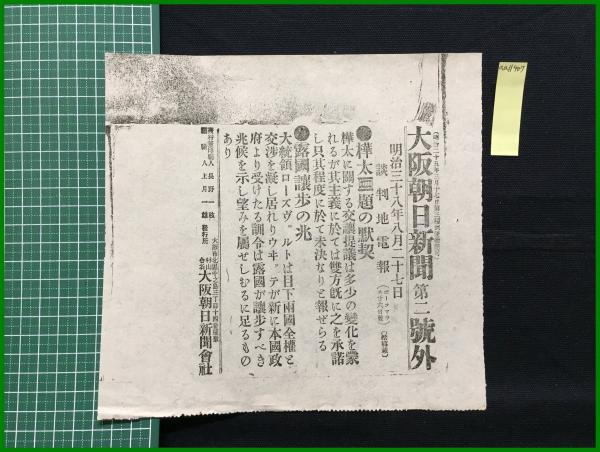 大阪朝日新聞 第二號外
明治三十八年八月二十七日
談判地電報
樺太問題の默契
樺太に關する交讓提議は多少の變化を蒙
れるが其主義に於ては雙方既に之を承諾
し只其程度に於て未決なりと報ぜらる
露國讓歩の兆
大統領ローズヴェルトは目下兩國全權と
交渉を凝し居れりウヰッテが新に本國政
府より受けたる訓令は露國が讓歩すべき
兆候を示し望みを屬せしむるに足るもの
あり
大阪朝日新聞會社